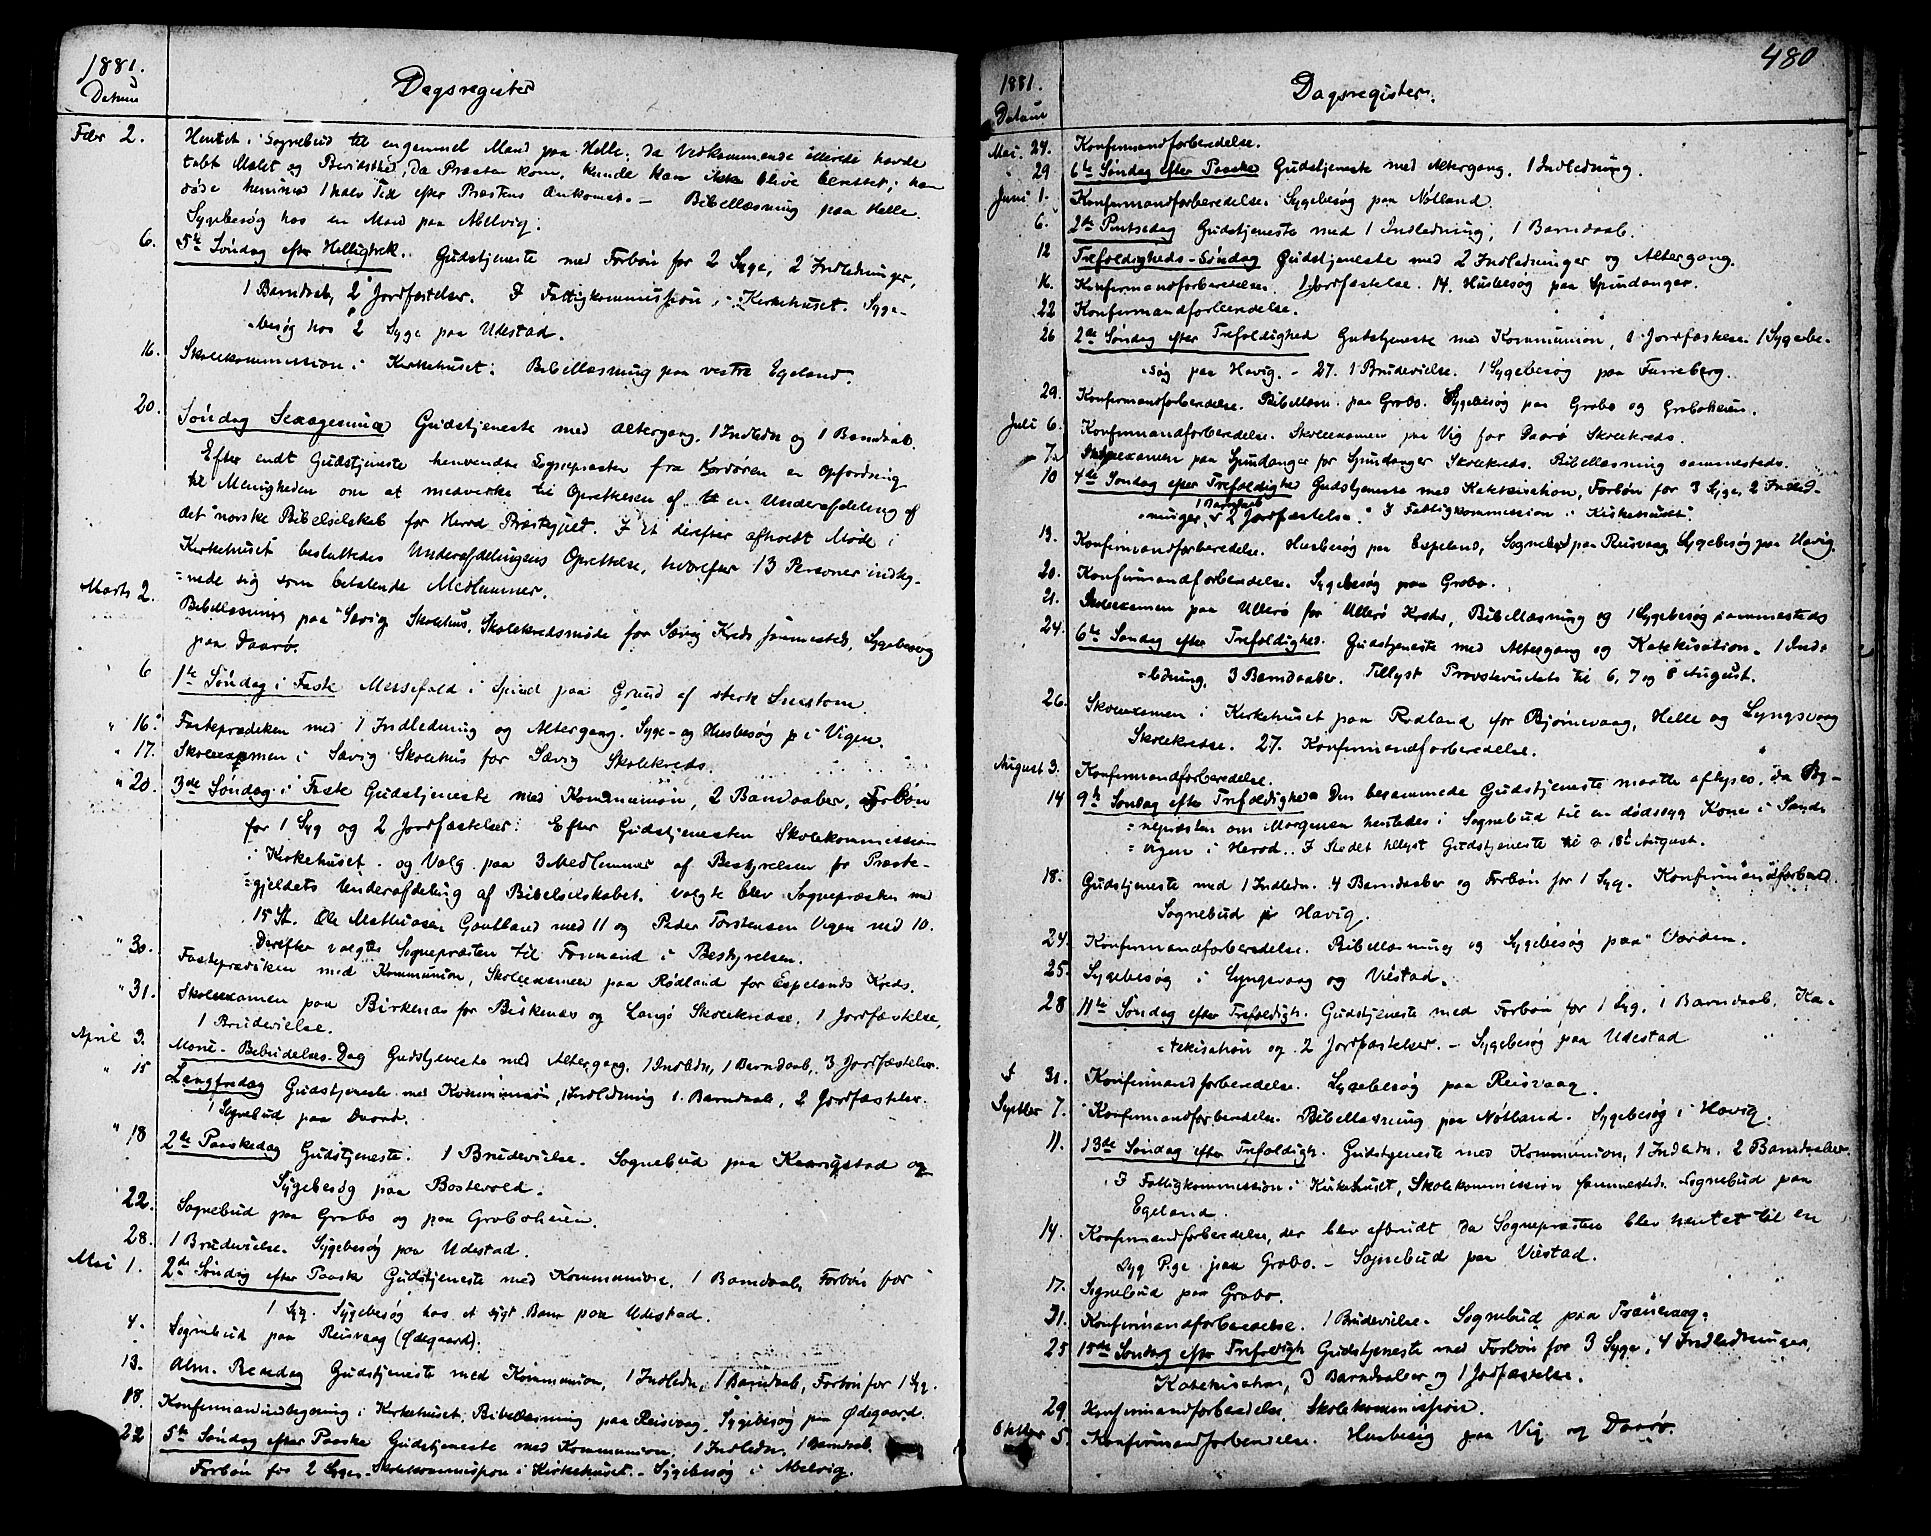 1881.
Datum
Dagsregister
Febr 2. Hentet i Sognebud til en gammel Mand paa Helle; da Vedkommende allerede havde
tabt Mælet og Bevidsthed, da Præsten kom, kunde han ikke blive berettet; han
døde henimod 1 halv Time efter Præstens Ankomst. – Bibellæsning paa Helle.
Sygebesøg hos en Mand paa Melvig.
6. 5te Søndag efter Helligtrek. Gudstjeneste med Forbøn for 2 Syge, 2 Indledninger,
1 Barndaab, 2 Jordfæstelser. I Fattigkommission i Kirkehuset. Syge-
besøg hos 2 Syge paa Udestad.
16. Skolekommission i Kirkehuset. Bibellæsning paa vestre Egeland.
20. Søndag Sexagesima Gudstjeneste med Altergang, 1 Indledn og 1 Barndaab.
Efter endt Gudstjeneste henvendte Sognepræsten fra Kordøren en Opfordring
til Menigheden om at medvirke til Oprettelsen af en Underafdeling af
det norske Bibelselskab for Herred Præstegjeld. I Et derefter afholdt Møde i
Kirkehuset besluttedes Underafdelingens Oprettelse, hvorefter 13 Personer indteg-
=nede sig som betalende Medlemmer.
Marts 2. Bibellæsning paa Sævig Skolehus, Skolekredsmøde for Sævig Kreds sammesteds, Sygebesøg
paa Daarø.
6 1te Søndag i Faste Messefald i Spind paa Grund af sterk Snestorm.
" 16. Fasteprædiken med 1 Indledning og Altergang. Syge- og Husbesøg i Vigen.
" 17. Skoleexamen i Sævig Skolehus for Sævig Skolekreds.
" 20. 3de Søndag i Faste Gudstjeneste med Kommunion, 2 Barndaaber, Forbøn
for 1 Syg og 2 Jordfæstelser. Efter Gudstjenesten Skolekommission
i Kirkehuset og Valg paa 3 Medlemmer af Bestyrelsen for Præste-
=gjeldets Underafdeling af Bibelselskabet. Valgte blev Sognepræsten med
15 St. Ole Mathiasen Gautland med 11 og Peder Torstensen Vigen med 10.
Derefter valgtes Sognepræsten til Formand i Bestyrelsen.
" 30. Fasteprædiken med Kommunion, Skoleexamen paa Rødland for Espelands Kreds.
" 31. Skoleexamen paa Birkenes for Birkenes og Langø Skolekredse. 1 Jordfæstelse,
1 Brudevielse.
April 3. Mariæ-Bebudelses-Dag Gudstjeneste med Altergang, 1 Indledn, 1 Barndaab, 3 Jordfæstelser.
" 15 Langfredag Gudstjeneste med Kommunion, 1 Indledning 1 Barndaab, 2 Jordfæstelser.
1 Sognebud paa
" 18 2de Paaskedag Gudstjeneste. 1 Brudevielse. Sognebud paa Kvavigstad og
Sygebesøg paa Bostevold.
22. Sognebud paa Grobo og paa Groboheien.
28. 1 Brudevielse. Sygebesøg paa Udestad.
Mai 1. 2de Søndag efter Paaske Gudstjeneste med Kommunion, 1 Barndaab, Forbøn for
1 Syg. Sygebesøg hos et sygt Barn paa Udestad.
4. Sognebud paa Reisvaag (Ødegaard).
13. Alm. Bededag Gudstjeneste med Kommunion, 1 Indledn, 1 Barndaab, Forbøn for 1 Syg.
18. Konfirmandindtegning i Kirkehuset, Bibellæsning paa Reisvaag, Sygebesøg paa Ødegaard.
22 5te Søndag efter Paaske Gudstjeneste med Kommunion, 1 Indledn, 1 Barndaab
Forbøn for 2 Syge. Skolekommission i Kirkehuset. – Sygebesøg i Melvig.
480
1881.
Datum
Dagsregister.
Mai. 24. Konfirmandforberedelse.
" 29 6te Søndag efter Paaske Gudstjeneste med Altergang, 1 Indledning.
Juni 1. Konfirmandforberedelse. Sygebesøg paa Nøtland.
6. 2den Pintsedag Gudstjeneste med 1 Indledning, 1 Barndaab.
12 Trefoldigheds-Søndag Gudstjeneste med 2 Indledninger og Altergang.
16. Konfirmandforberedelse. 1 Jordfæstelse. 14. Husbesøg paa Spindanger.
22 Konfirmandforberedelse.
26 2de Søndag efter Trefoldighed Gudstjeneste med Kommunion, 1 Jordfæstelse. 1 Sygebe-
søg paa Havig. – 27. 1 Brudevielse. 1 Sygebesøg paa Farreberg.
29. Konfirmandforberedelse. Bibellæsn. paa Grobo. Sygebesøg paa Grobo og Groboheien.
Juli 6. Konfirmandforberedelse. Skoleexamen paa Vig for Daarø Skolekreds.
" 7. Skoleexamen paa Spindanger for Spindanger Skolekreds. Bibellæsning sammesteds.
10 4de Søndag efter Trefoldighed Gudstjeneste med Katekisation, Forbøn for 3 Syge, 2 Indled-
1 Barndaab
=ninger, 2 Jordfæstelse. I Fattigkommission i Kirkehuset.
13. Konfirmandforberedelse. Husbesøg paa Espeland, Sognebud paa Reisvaag Sygebesøg paa Havig.
20. Konfirmandforberedelse. Sygebesøg paa Grobo.
21. Skoleexamen paa Ullerø for Ullerø Kreds, Bibellæsning og 1 Sygebesøg sammesteds
24. 6te Søndag efter Trefoldighed. Gudstjeneste med Altergang og Katekisation. 1 Ind-
=ledning, 3 Barndaaber. Tillyst Provstevisitats til 6, 7 og 8 August.
26. Skoleexamen i Kirkehuset paa Rødland for Bjørnevaag, Helle og Lyngsvaag
Skolekredse. 27. Konfirmandforberedelse.
August 3. Konfirmandforberedelse.
14 9de Søndag efter Trefoldighed Den berammede Gudstjeneste maatte aflyses, da Sog-
=nepræsten om Morgenen hentedes i Sognebud til en dødssyg Kone i Sands-
=vigen i Herred. I Stedet tillyst Gudstjeneste til 18de August.
18. Gudstjeneste med 1 Indledn. 4 Barndaaber og Forbøn for 1 Syg. Konfirmandforbered.
Sognebud p Havig.
24. Konfirmandforberedelse. Bibellæsning og Sygebesøg paa Varden.
25. Sygebesøg i Lyngsvaag og Viestad.
28 11te Søndag efter Trefoldigh. Gudstjeneste med Forbøn for 1 Syg, 1 Barndaab, Ka-
=tekisation og 2 Jordfæstelser. – Sygebesøg paa Udestad
31. Konfirmandforberedelse. Sygebesøg paa Reisvaag.
Septbr 7. Konfirmandforberedelse Bibellæsning paa Nøtland. Sygebesøg i Havig.
11. 13de Søndag efter Trefoldigh. Gudstjeneste med Kommunion, 1 Indledn. 2 Barndaaber.
I Fattigkommission i Kirkehuset, Skolekommission sammesteds. Sognebud paa
Egeland.
14. Konfirmandforberedelse, der blev afbrudt, da Sognepræsten blev hentet til en
syg Pige paa Grobo. – Sognebud paa Viestad.
17. Sognebud paa Grobo.
21. Konfirmandforberedelse. 1 Brudevielse. Sognebud paa Tranevaag.
25 15de Søndag efter Trefoldigh Gudstjeneste med Forbøn for 3 Syge, 4 Indledninger,
Katekisation, 3 Barndaaber og 1 Jordfæstelse.
29. Konfirmandforberedelse Skolekommission.
Oktbr 5. Konfirmandforberedelse. Husbesøg paa Vig og Daarø.